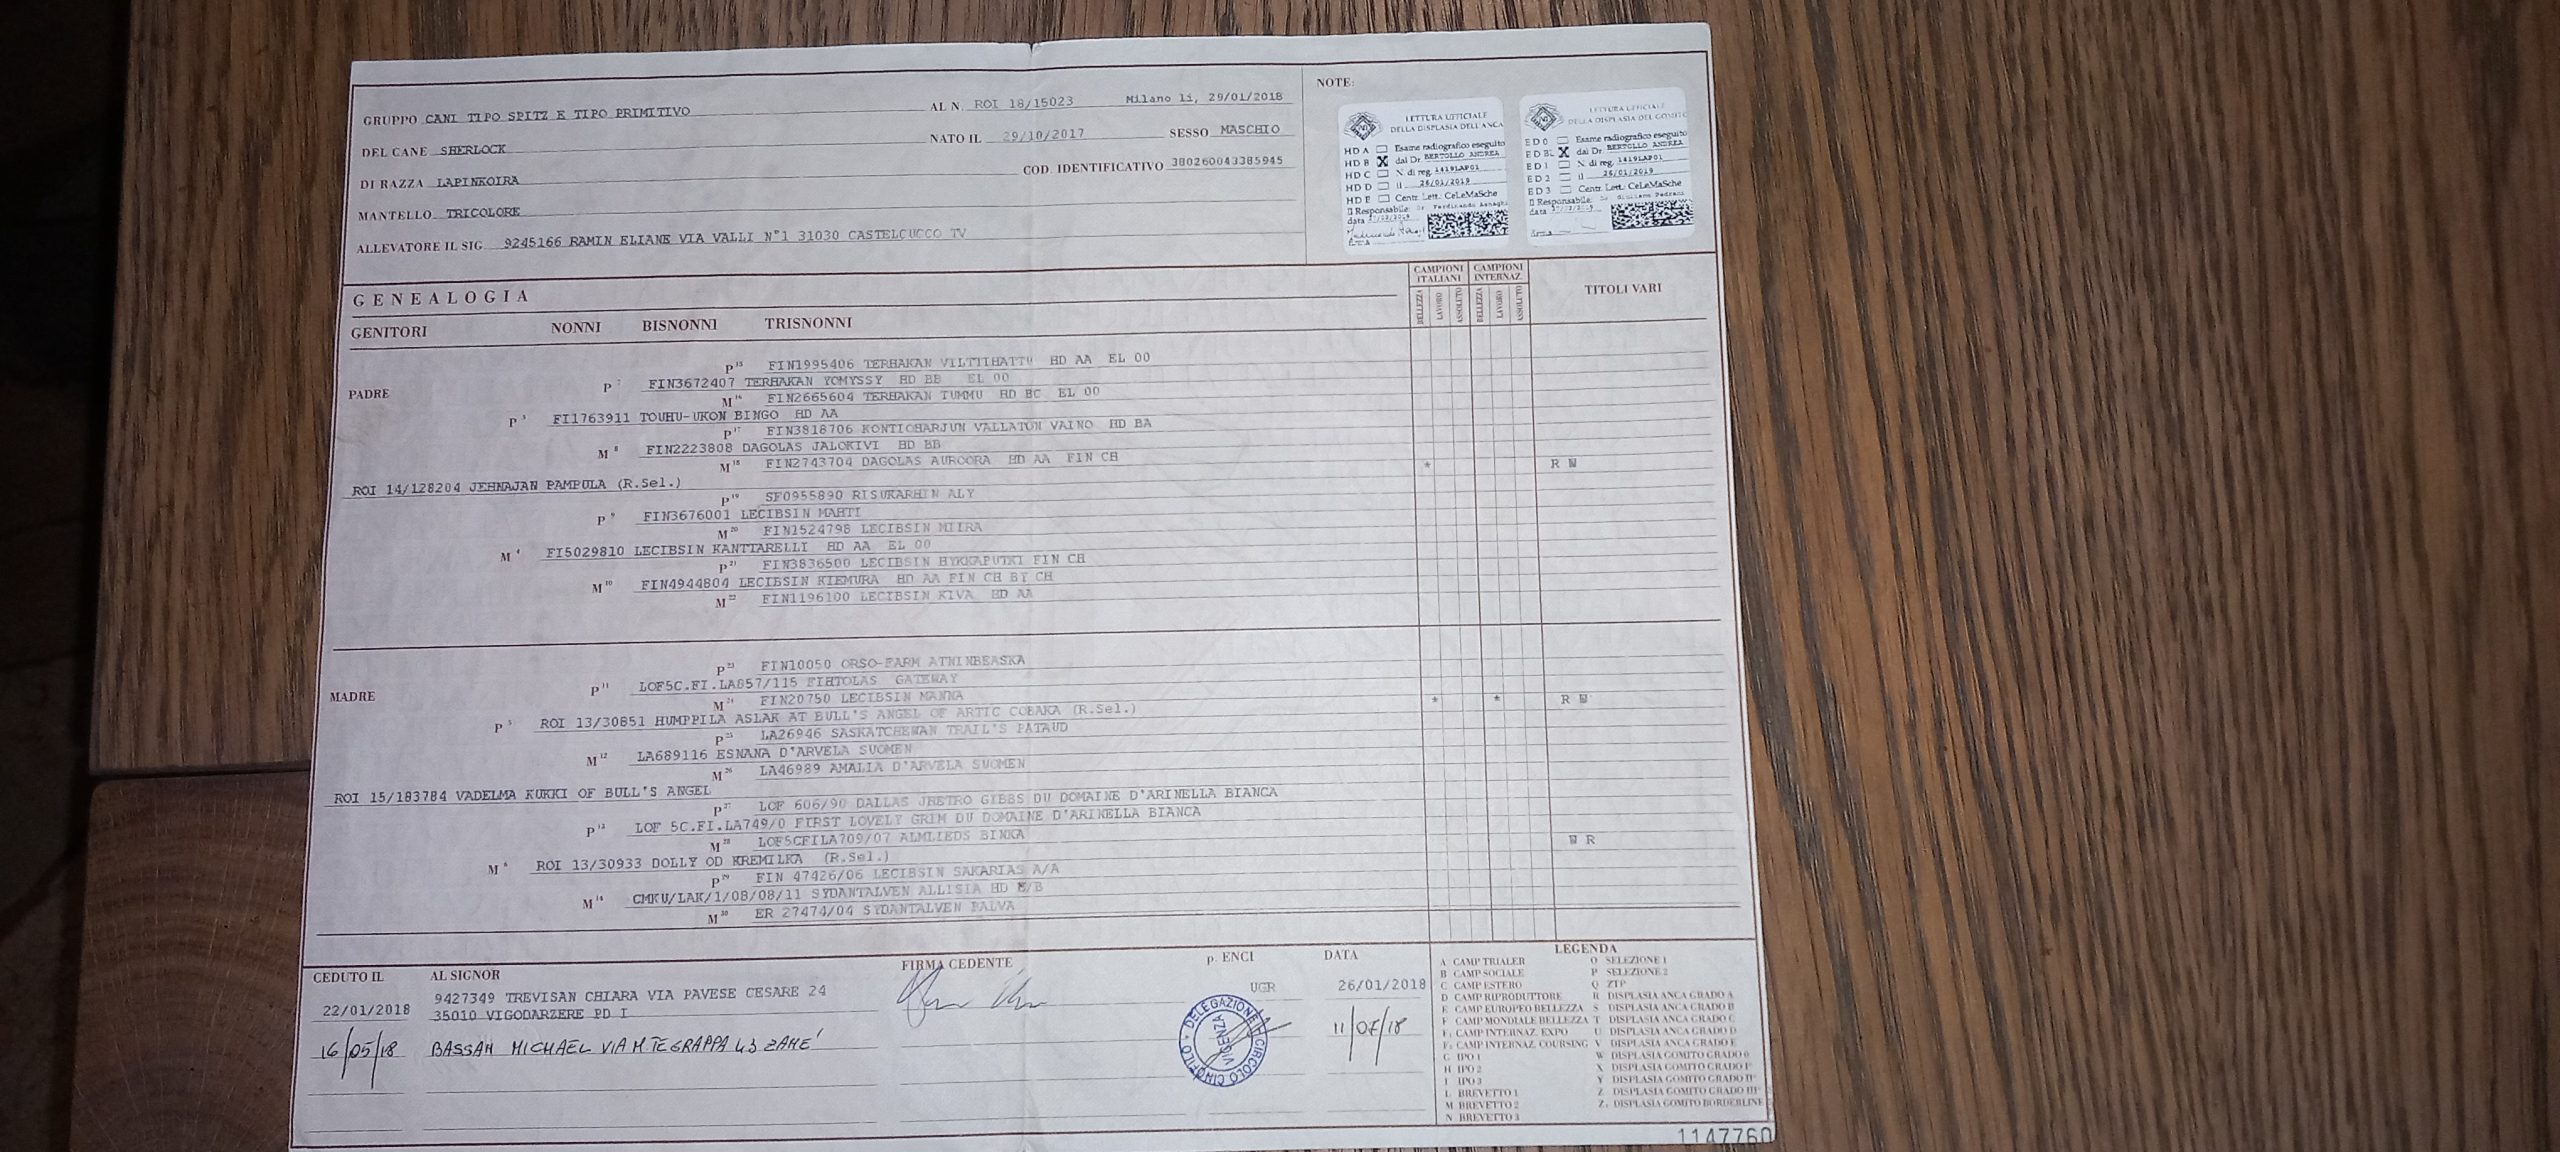 GRUPPO CANI TIPO SPITZ E TIPO PRIMITIVO
AL N. ROI 18/15023 Milano li, 29/01/2018
DEL CANE SHERLOCK
NATO IL 29/10/2017 SESSO MASCHIO
DI RAZZA LAPINKOIRA
COD. IDENTIFICATIVO 380260043385945
MANTELLO TRICOLORE
ALLEVATORE IL SIG. 9245166 RAMIN ELIANE VIA VALLI N°1 31030 CASTELCUCCO TV
NOTE:
LETTURA UFFICIALE
DELLA DISPLASIA DELL'ANCA
HD A Esame radiografico eseguito
HD B X dal Dr. BERTOLLO ANDREA
HD C N. di reg. 1419LAP01
HD D il 26/01/2019
HD E Centr. Lett. CeLeMaSche
Il Responsabile: Dr
data
LETTURA UFFICIALE
DELLA DISPLASIA DEL GOMITO
ED 0 Esame radiografico eseguito
ED BL X dal Dr. BERTOLLO ANDREA
ED 1 N. di reg. 1419LAP01
ED 2 il 26/01/2019
ED 3 Centr. Lett. CeLeMaSche
Il Responsabile:
data
GENEALOGIA
CAMPIONI ITALIANI CAMPIONI INTERNAZ. TITOLI VARI
BELLEZZA LAVORO ASSOLUTO BELLEZZA LAVORO ASSOLUTO
GENITORI NONNI BISNONNI TRISNONNI
P 15 FIN1995406 TERHAKAN VILTTIHATTU HD AA EL 00
PADRE
P 7 FIN3672407 TERHAKAN YOMYSSY HD BB EL 00
M 16 FIN2665604 TERHAKAN TUMMU HD BC EL 00
P 3 FI1763911 TOUHU-UKON BINGO HD AA
P 17 FIN3818706 KONTIOHARJUN VALLATON VAINO HD BA
M 8 FIN2223808 DAGOLAS JALOKIVI HD BB
M 18 FIN2743704 DAGOLAS AUROORA HD AA FIN CH
* R W
ROI 14/128204 JEHNAJAN PAMPULA (R.Sel.)
P 19 SF0955890 RISUKARHIN ALY
P 9 FIN3676001 LECIBSIN MAHTI
M 20 FIN1524798 LECIBSIN MIIRA
M 4 FI5029810 LECIBSIN KANTTARELLI HD AA EL 00
P 21 FIN3836500 LECIBSIN HYKKAPUTKI FIN CH
M 10 FIN4944804 LECIBSIN KIEMURA HD AA FIN CH BY CH
M 22 FIN1196100 LECIBSIN KIVA HD AA
P 23 FIN10050 ORSO-FARM ATNINBEASKA
MADRE
P 11 LOF5C.FI.LA857/115 FIHTOLAS GATEWAY
M 24 FIN20750 LECIBSIN MANNA
* * R W
P 5 ROI 13/30851 HUMPPILA ASLAK AT BULL'S ANGEL OF ARTIC COBAKA (R.Sel.)
P 25 LA26946 SASKATCHEWAN TRAIL'S PATAUD
M 12 LA689116 ESNANA D'ARVELA SUOMEN
M 26 LA46989 AMALIA D'ARVELA SUOMEN
ROI 15/183784 VADELMA KUKKI OF BULL'S ANGEL
P 27 LOF 606/90 DALLAS JHETRO GIBBS DU DOMAINE D'ARINELLA BIANCA
P 13 LOF 5C.FI.LA749/0 FIRST LOVELY GRIM DU DOMAINE D'ARINELLA BIANCA
M 28 LOF5CFILA709/07 ALMLIEDS BINKA
W R
M 6 ROI 13/30933 DOLLY OD KREMILKA (R.Sel.)
P 29 FIN 47426/06 LECIBSIN SAKARIAS A/A
M 14 CMKU/LAK/1/08/08/11 SYDANTALVEN ALLISIA HD /B
M 30 ER 27474/04 SYDANTALVEN PALVA
CEDUTO IL AL SIGNOR FIRMA CEDENTE p. ENCI DATA
22/01/2018 9427349 TREVISAN CHIARA VIA PAVESE CESARE 24
35010 VIGODARZERE PD I
UGR 26/01/2018
16/05/18 BASSAN MICHAEL VIA M.TE GRAPPA 43 ZANÉ
DELEGAZIONE CIRCOLO CINOFILO VICENZA
11/07/18
LEGENDA
A CAMP TRIALER O SELEZIONE 1
B CAMP SOCIALE P SELEZIONE 2
C CAMP ESTERO Q ZTP
D CAMP RIPRODUTTORE R DISPLASIA ANCA GRADO A
E CAMP EUROPEO BELLEZZA S DISPLASIA ANCA GRADO B
F CAMP MONDIALE BELLEZZA T DISPLASIA ANCA GRADO C
F1 CAMP INTERNAZ. EXPO U DISPLASIA ANCA GRADO D
F2 CAMP INTERNAZ. COURSING V DISPLASIA ANCA GRADO E
G IPO 1 W DISPLASIA GOMITO GRADO 0
H IPO 2 X DISPLASIA GOMITO GRADO I°
I IPO 3 Y DISPLASIA GOMITO GRADO II°
L BREVETTO 1 Z DISPLASIA GOMITO GRADO III°
M BREVETTO 2 Z1 DISPLASIA GOMITO BORDERLINE
N BREVETTO 3
1147760